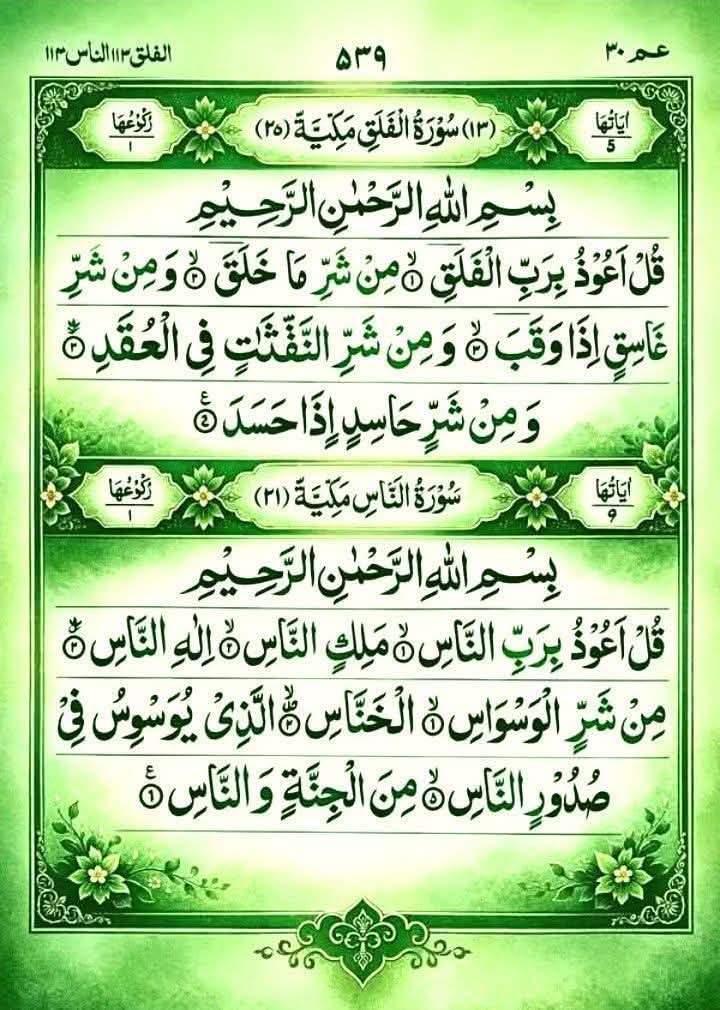 عم ٣٠
٥٣٩
الفلق ١١٣ الناس ١١٣
اٰيَاتُهَا 5
(١٣) سُوْرَةُ الْفَلَقِ مَكِّيَّةٌ (٢٥)
رُكُوْعُهَا ١
بِسْمِ اللّٰهِ الرَّحْمٰنِ الرَّحِيْمِ
قُلْ اَعُوْذُ بِرَبِّ الْفَلَقِ ۙ﴿١﴾ مِنْ شَرِّ مَا خَلَقَ ۙ﴿٢﴾ وَ مِنْ شَرِّ
غَاسِقٍ اِذَا وَقَبَ ۙ﴿٣﴾ وَ مِنْ شَرِّ النَّفّٰثٰتٍ فِي الْعُقَدِ ۙ﴿٣﴾
وَ مِنْ شَرٍّ حَاسِدٍ إِذَا حَسَدَ ﴿٤﴾ ع
اٰيَاتُهَا ٩
سُوْرَةُ النَّاسِ مَكِّيَّةٌ (٢١)
رُكُوْعُهَا ١
بِسْمِ اللّٰهِ الرَّحْمٰنِ الرَّحِيْمِ
قُلْ اَعُوْذُ بِرَبِّ النَّاسِ ۙ﴿١﴾ مَلِكٍ النَّاسِ ۙ﴿٢﴾ اِلٰهِ النَّاسِ ۙ﴿٣﴾
مِنْ شَرٍّ الْوَسْوَاسِ ۙ﴿١﴾ الْخَنَّاسِ ۙ﴿٣﴾ الَّذِىْ يُوَسْوِسُ فِىْ
صُدُوْرٍ النَّاسِ ۙ﴿٥﴾ مِنَ الْجِنَّةٍ وَ النَّاسِ ﴿٦﴾ ع